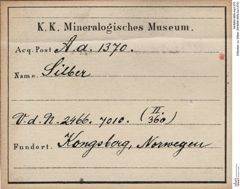 K. K. Mineralogisches Museum.
Acq. Post A.d. 1370.
Name. Silber
V. d. N. 2466. 7010. (II. 36a)
Fundort. Kongsberg, Norwegen